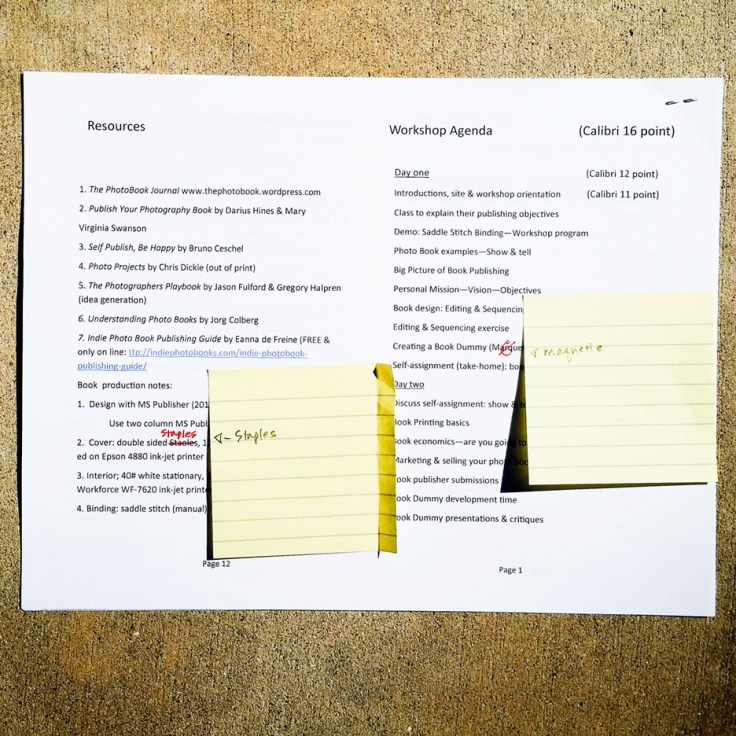 Resources
1. The PhotoBook Journal www.thephotobook.wordpress.com
2. Publish Your Photography Book by Darius Hines & Mary
Virginia Swanson
3. Self Publish, Be Happy by Bruno Ceschel
4. Photo Projects by Chris Dickie (out of print)
5. The Photographers Playbook by Jason Fulford & Gregory Halpren
(idea generation)
6. Understanding Photo Books by Jorg Colberg
7. Indie Photo Book Publishing Guide by Eanna de Freine (FREE &
only on line: ttp://indiephotobooks.com/indie-photobook-
publishing-guide/
Book production notes:
1. Design with MS Publisher (201
Use two column MS Publ
Staples
2. Cover: double sided Staoles, 1
ed on Epson 4880 ink-jet printer
3. Interior; 40# white stationary,
Workforce WF-7620 ink-jet printe
4. Binding: saddle stitch (manual)
Page 12
Staples
Workshop Agenda (Calibri 16 point)
Day one (Calibri 12 point)
Introductions, site & workshop orientation (Calibri 11 point)
Class to explain their publishing objectives
Demo: Saddle Stitch Binding—Workshop program
Photo Book examples—Show & tell
Big Picture of Book Publishing
Personal Mission—Vision—Objectives
Book design: Editing & Sequencin
Editing & Sequencing exercise
Creating a Book Dummy
Self-assignment (take-home): boo
Day two
Discuss self-assignment: show &
Book Printing basics
Book economics—are you going to
Marketing & selling your photo boo
ook publisher submissions
ook Dummy development time
ook Dummy presentations & critiques
Page 1
maquette